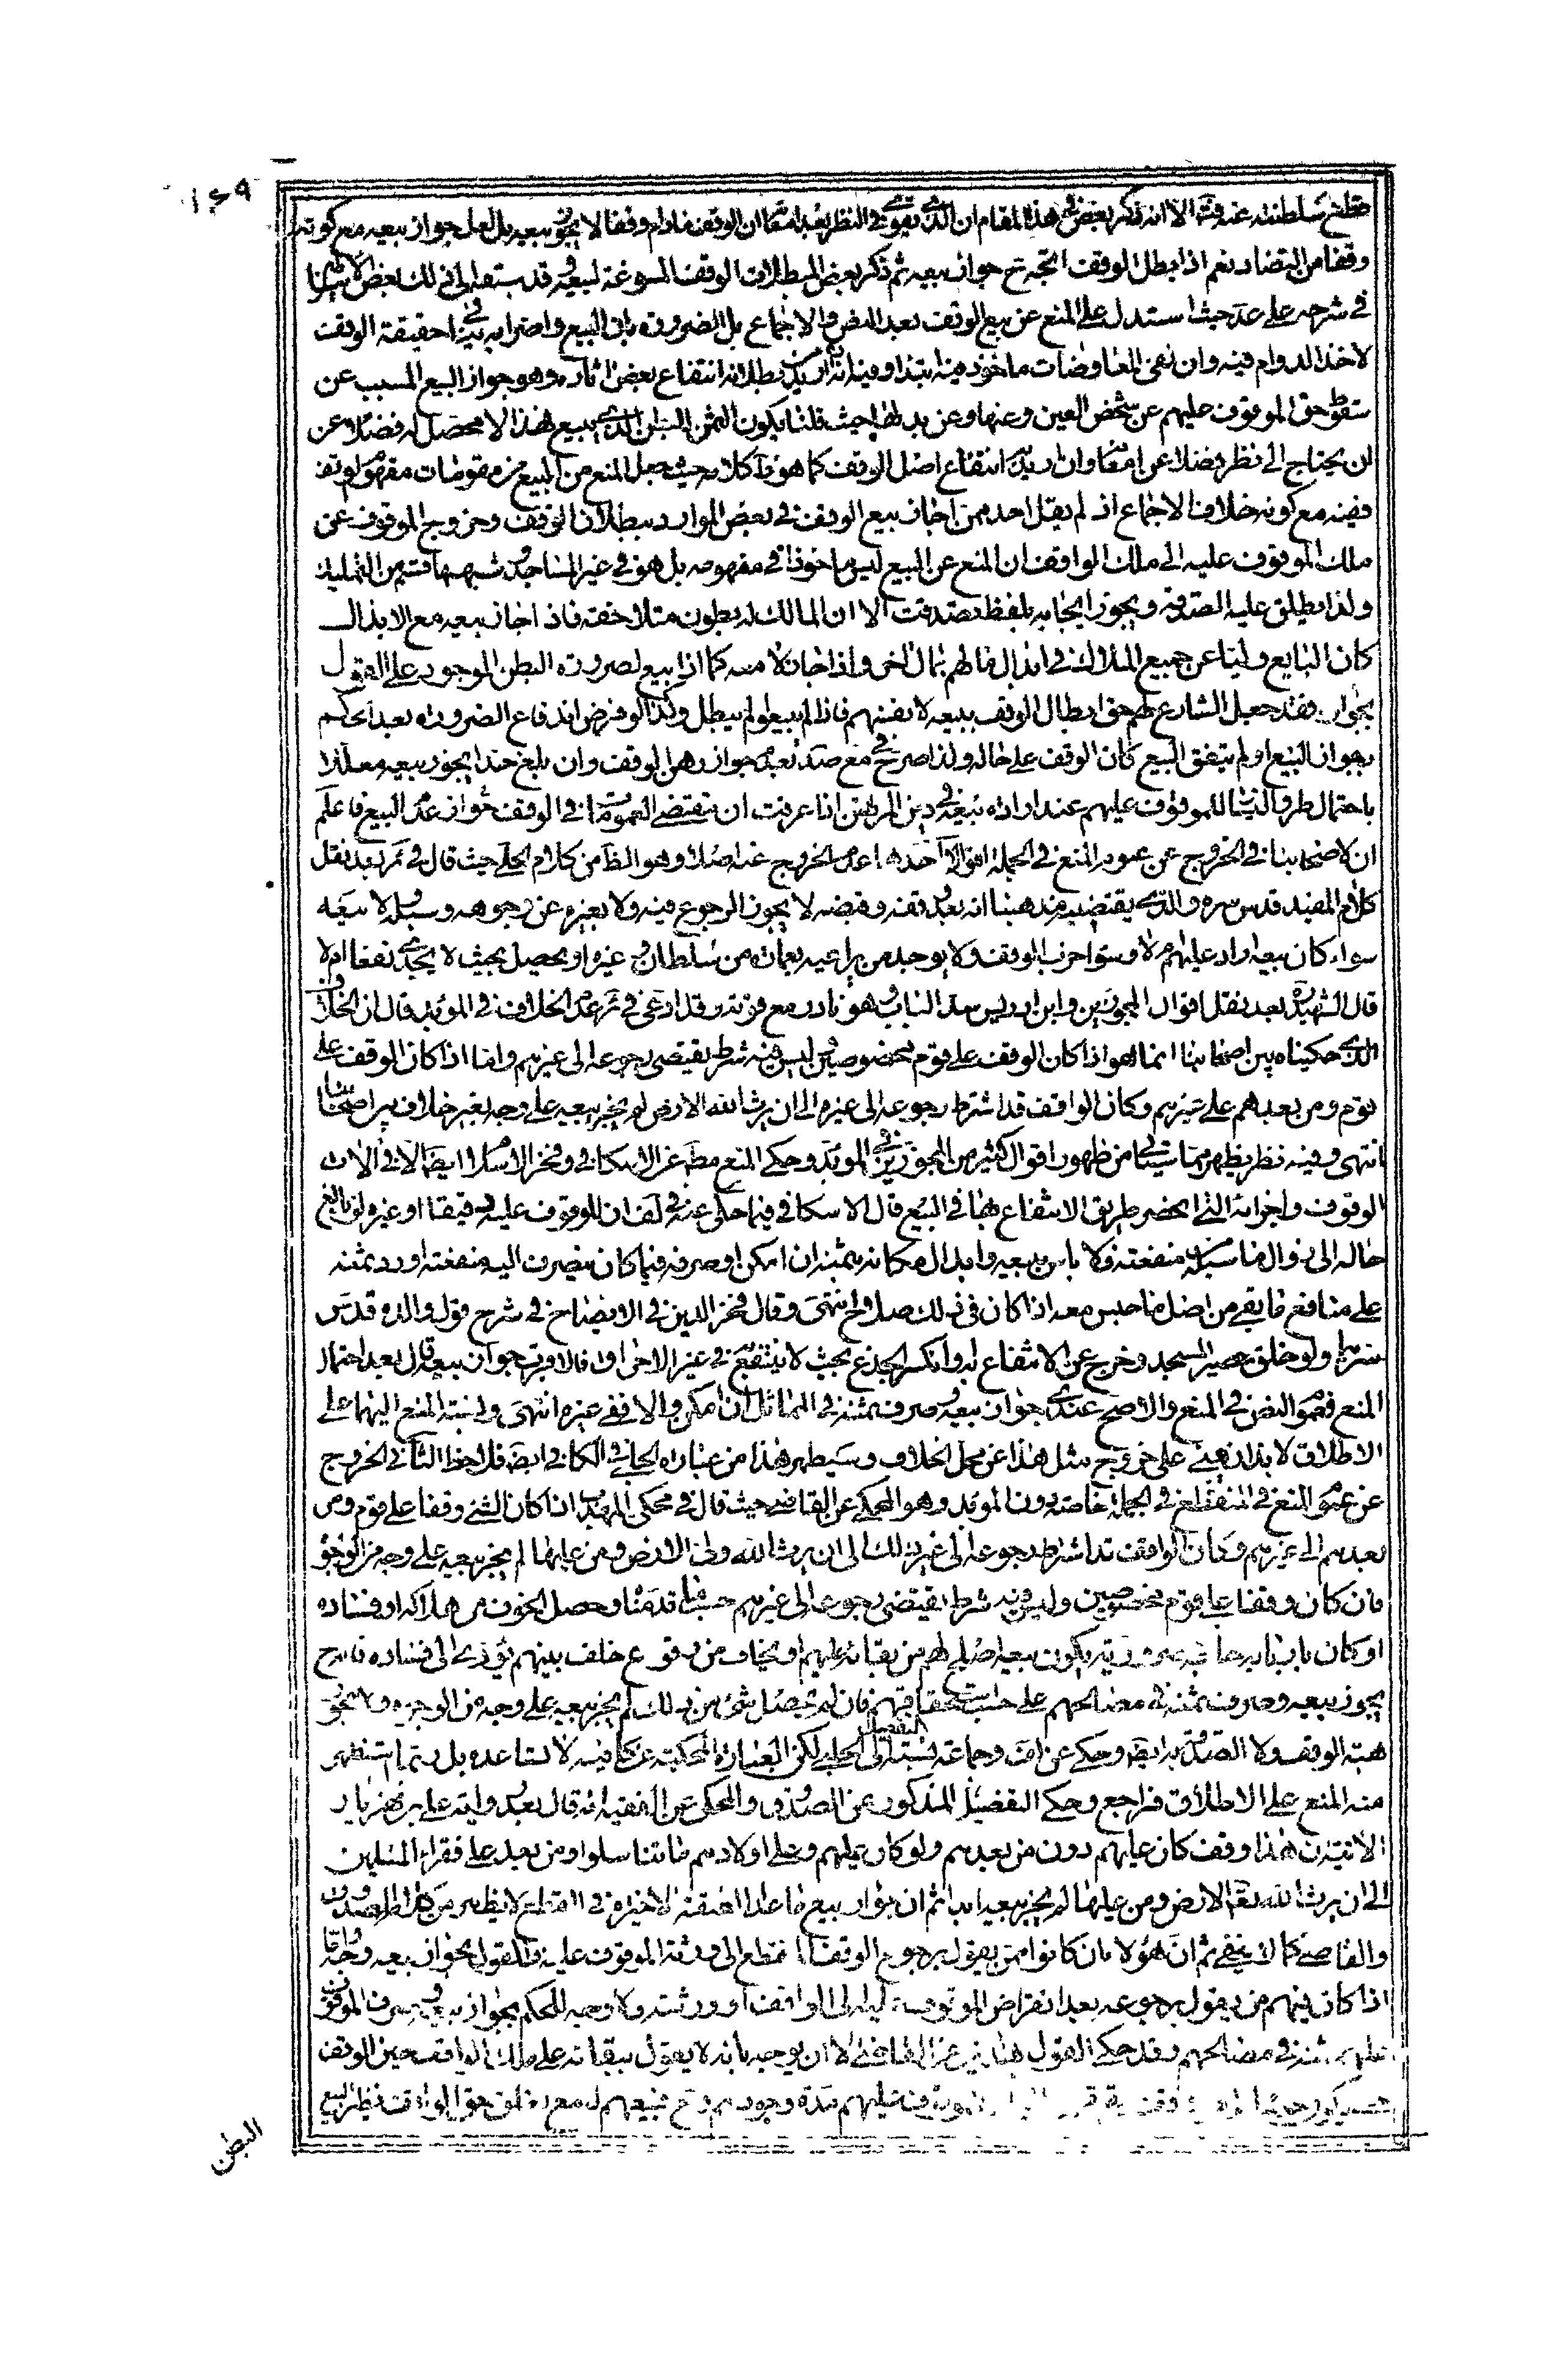 ١٦٩
فقطع سلطنته عنه فتأمل الا انه ذكر بعض في هذا المقام ان الذي يقوى في النظر بعد امعانه ان الوقف مادام وقفا لا يجوز بيعه بل لعل جواز بيعه مع كونه
وقفا من التضاد نعم اذا بطل الوقف اتجه ح جواز بيعه ثم ذكر بعض المبطلات الوقف المسوغة لبيعه وقد سبقه الى ذلك بعض الاساطين
في شرحه على عد حيث استدل على المنع عن بيع الوقف بعد النص والاجماع بل الضرورة بان البيع واضرابه ينافي حقيقة الوقف
لاخذ الدوام فيه وان نفى المعاوضات ماخوذ فيه ابتداء وفيه انه ان اريد من بطلانه انتفاء بعض اثاره وهو جواز البيع المسبب عن
سقوط حق الموقوف عليهم عن شخص العين وعنها وعن بدلها حيث قلنا بكون الثمن للبطن الذي يبيع فهذا لا محصل له فضلا عن
ان يحتاج الى نظر فضلا عن امعانه وان اريد به انتفاء اصل الوقف كما هو ظ كلامه حيث جعل المنع من البيع من مقومات مفهوم الوقف
ففيه مع كونه خلاف الاجماع اذ لم يقل احد ممن اجاز بيع الوقف في بعض الموارد ببطلان الوقف وخروج الموقوف عن
ملك الموقوف عليه الى ملك الواقف ان المنع عن البيع ليس ماخوذا في مفهومه بل هو في غير المساجد وشبهها قسم من التمليك
ولذا يطلق عليه الصدقة ويجوز ايجابه بلفظ تصدقت الا ان المالك له بطون متلاحقة فاذا اجاز بيعه مع الابدال
كان البايع وليا عن جميع الملاك في ابدال مالهم بمال اخر واذا جاز لا معه كما اذا بيع لضرورة البطن الموجود على القول
بجوازه فقد جعل الشارع لهم حق ابطال الوقف ببيعه لانفسهم فاذا لم يبيعوا لم يبطل وكذا لو فرض اندفاع الضرورة بعد الحكم
بجواز البيع او لم يتفق البيع كان الوقف على حاله ولذا صرح في مع صد بعدم جواز رهن الوقف وان بلغ حدا يجوز بيعه معللا
باحتمال طرو اليسار للموقوف عليهم عند ارادة بيعه في دين المرتهن اذا عرفت ان مقتضى العمومات في الوقف عدم جواز البيع فاعلم
ان لاصحابنا في الخروج عن عموم المنع في الجملة اقوالا احدها عدم الخروج عنه اصلا وهو الظ من كلام الحلي حيث قال في ئر بعد نقل
كلام المفيد قدس سره والذي يقتضيه مذهبنا انه بعد وقفه وقبضه لا يجوز الرجوع فيه ولا تغييره عن وجوهه وسبله ولا بيعه
سواء كان بيعه اراد عليهم ام لا وسواء خرب الوقف ولا يوجد من يراعيه بعمارة من سلطان وغيره او يحصل بحيث لا يجدي نفعا ام لا
قال الشهيد ره بعد نقل اقوال المجوزين وابن ادريس سد الباب وهو نادر مع قوته وقد ادعى في ئر عدم الخلاف في المؤبد قال ان الخلاف
الذي حكيناه بين اصحابنا انما هو اذا كان الوقف على قوم مخصوصين ليس فيه شرط يقتضي رجوعه الى غيرهم واما اذا كان الوقف على
قوم ومن بعدهم على غيرهم وكان الواقف قد اشترط رجوعه الى غيره الى ان يرث الله الارض لم يجز بيعه على وجه بغير خلاف بين اصحابنا
انتهى وفيه نظر يظهر مما سيأتي من ظهور اقوال كثير من المجوزين في المؤبد وحكي المنع مطلقا عن الاسكافي وفخر الاسلام ايضا الا في الات
الوقوف واجزائه التي انحصر طريق الانتفاع بها في البيع قال الاسكافي فيما حكي عنه في لف ان الموقوف عليه رقيقا او غيره لو بلغ
حاله الى زوال ما سبله من منفعته فلا باس ببيعه وابدال مكانه بثمنه ان امكن او صرفه فيما كان يصرف اليه منفعته او رد ثمنه
على منافع ما بقي من اصل ما حبس معه اذا كان في ذلك صلاح انتهى وقال فخر الدين في الايضاح في شرح قول والده قدس
سرهما ولو خلق حصير المسجد وخرج عن الانتفاع به او انكسر الجذع بحيث لا ينتفع به في غير الاحراق فالاقرب جواز بيعه قال بعد احتمال
المنع لعموم النص في المنع والاصح عندي جواز بيعه وصرف ثمنه في المماثل ان امكن والا ففي غيره انتهى ونسبة المنع اليهما على
الاطلاق لا بد ان يبنى على خروج مثل هذا عن محل الخلاف وسيظهر هذا من عبارة الحلبي في الكافي ايضا فلاحظ الثاني الخروج
عن عموم المنع في المنقطع في الجملة خاصة دون المؤبد وهو المحكي عن القاضي حيث قال في محكي المهذب اذا كان الشئ وقفا على قوم ومن
بعدهم الى غيرهم وكان الواقف قد اشترط رجوعه الى غير ذلك الى ان يرث الله تعالى الارض ومن عليها لم يجز بيعه على وجه من الوجوه
فان كان وقفا على قوم مخصوصين وليس فيه شرط يقتضي رجوعه الى غيرهم حسبما قدمناه وحصل الخوف من هلاكه او فساده
او كان باربابه حاجة ضرورية يكون بيعه اصلح لهم من بقائه عليهم او يخاف من وقوع خلف بينهم يؤدي الى فساده فانه ح
يجوز بيعه وصرف ثمنه في مصالحهم على حسب استحقاقهم فان لم يحصل شئ من ذلك لم يجز بيعه على وجه من الوجوه ولا يجوز
هبة الوقف ولا الصدقة به ايضا وحكي عن لف وجماعة نسبة التفصيل الى الحلبي لكن العبارة المحكية عن كافيه لا تساعده بل ربما استظهر
منه المنع على الاطلاق فراجع وحكي التفصيل المذكور عن الصدوق والمحكي عن الفقيه انه قال بعد رواية علي بن مهزيار
الاتية ان هذا وقف كان عليهم دون من بعدهم ولو كان عليهم وعلى اولادهم ما تناسلوا ومن بعد على فقراء المسلمين
الى ان يرث الله تعالى الارض ومن عليها لم يجز بيعه ابدا ثم ان جواز بيع ما عدا الطبقة الاخيرة في المنقطع لا يظهر من كلام الصدوق
والقاضي كما لا يخفى ثم ان هؤلاء ان كانوا ممن يقول برجوع الوقف المنقطع الى ورثة الموقوف عليه فللقول بجواز بيعه وجه واما
اذا كان فيهم من يقول برجوعه بعد انقراض الموقوف عليه الى الواقف او ورثته فلا وجه للحكم بجواز بيعه وصرف الموقوف
عليهم ثمنه في مصالحهم وقد حكي القول بهذين عن القاضي الا ان يوجه بانه لا يقول ببقائه على ملك الواقف حين الوقف
البطن